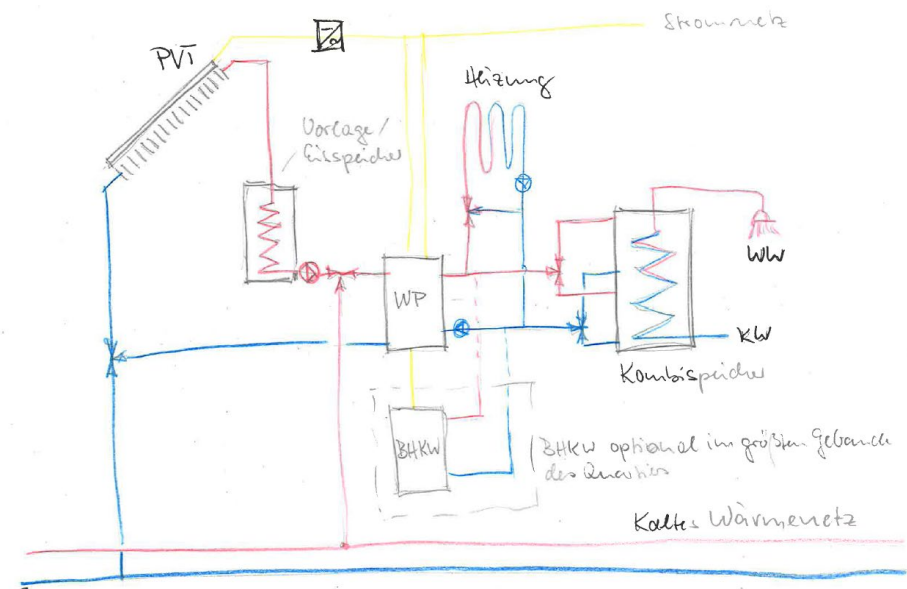 Stromnetz
PVT
Heizung
Vorlage/
Eisspeicher
WW
WP
KW
Kombispeicher
BHKW
BHKW optional im größten Gebäude
des Quartiers
Kaltes Wärmenetz